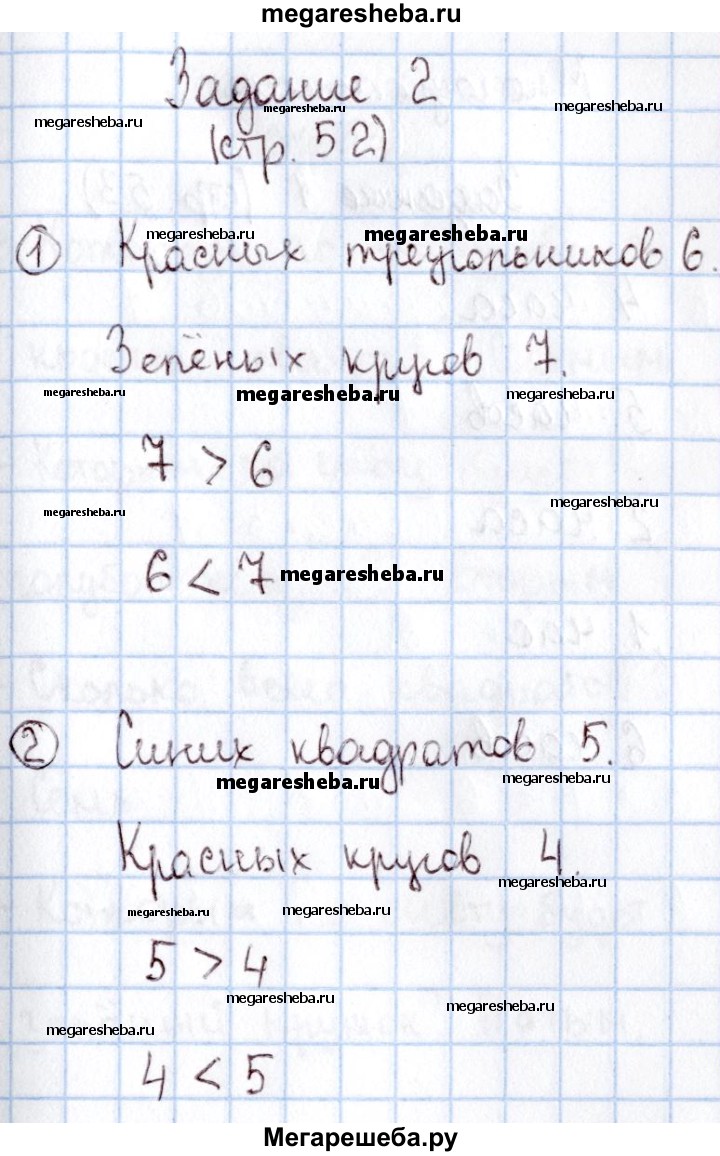 megaresheba.ru
Задание 2
megaresheba.ru
megaresheba.ru
megaresheba.ru
(стр. 52)
megaresheba.ru
megaresheba.ru
1 Красных треугольников 6.
Зелёных кругов 7.
megaresheba.ru
megaresheba.ru
megaresheba.ru
7 > 6
megaresheba.ru
megaresheba.ru
6 < 7
megaresheba.ru
2 Синих квадратов 5.
megaresheba.ru
megaresheba.ru
Красных кругов 4.
megaresheba.ru
megaresheba.ru
megaresheba.ru
5 > 4
megaresheba.ru
megaresheba.ru
megaresheba.ru
4 < 5
Мегарешеба.ру